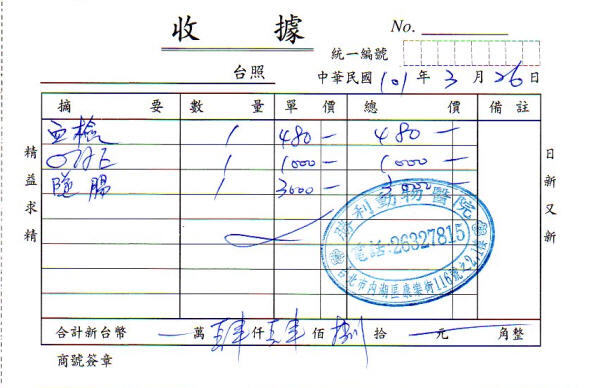 收據
No.
統一編號
台照
中華民國 101 年 3 月 26 日
摘要 數量 單價 總價 備註
血檢 1 480— 480—
1 1000— 1000—
隧腸 1 3000— 3000—
精益求精
日新又新
勝利動物醫院
電話:26327815
台北市內湖區康樂街116號之2,1樓
合計新台幣 — 萬 肆 仟 肆 佰 捌 拾 — 元 角整
商號簽章